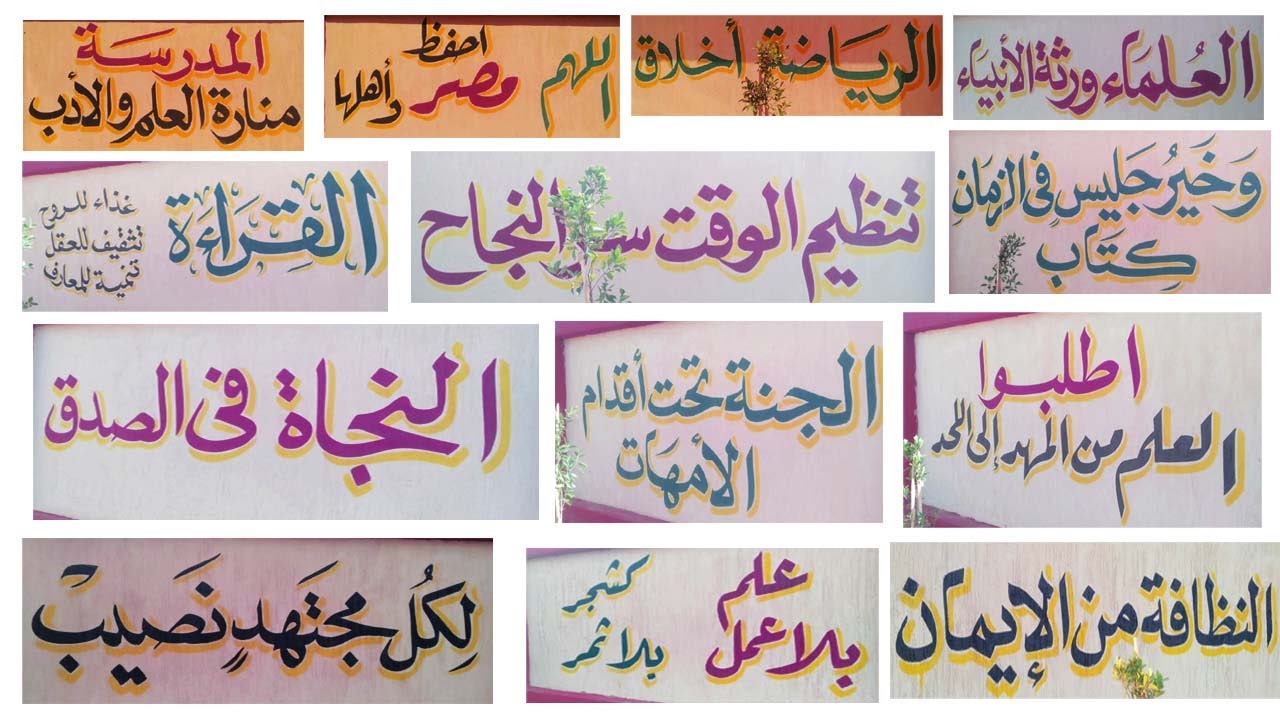 المدرسة
منارة العلم والأدب
اللهم احفظ
مصر
وأهلها
الرياضة أخلاق
العُلماء ورثة الأنبياء
القِرَاءَة
غذاء للروح
تثقيف للعقل
تنمية للمعارف
تنظيم الوقت سر النجاح
وَخَيرُ جَليسٍ في الزمَانِ
كِتَابُ
النجاة في الصدق
الجنة تحت أقدام
الأمهات
اطلبوا
العلم من المهد إلى اللحد
لِكُلِ مجتَهدٍ نَصيبْ
علم
بلا عمل
كشجر
بلا ثمر
النظافة من الإيمان